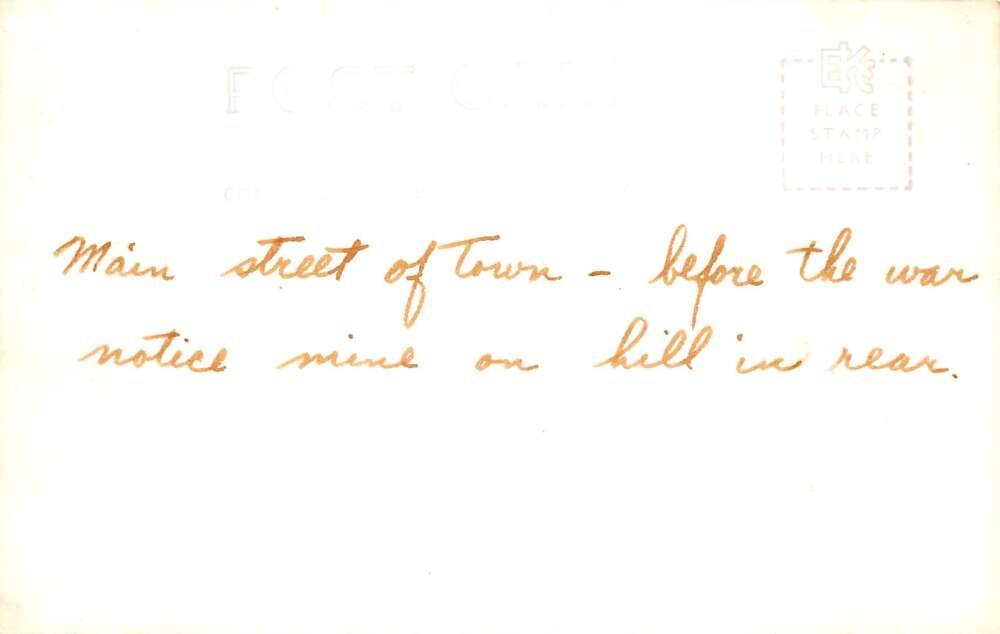 POST CARD
EKC
PLACE
STAMP
HERE
Main street of Town - before the war
notice mine on hill in rear.